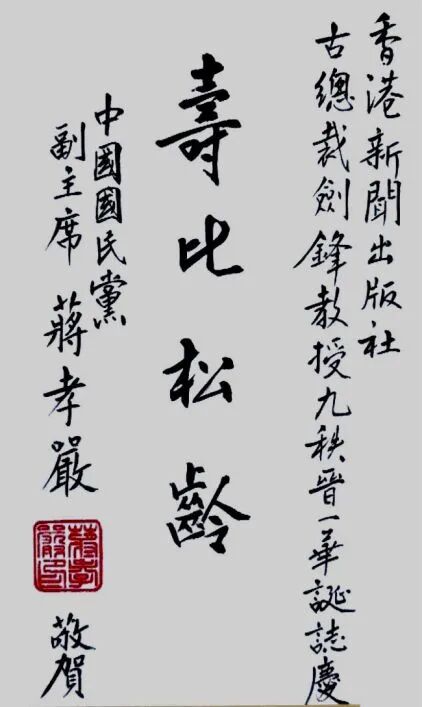 香港新聞出版社
古總裁劍鋒教授九秩晉一華誕誌慶
壽比松齡
中國國民黨
副主席 蔣孝嚴
敬賀
蔣孝嚴印